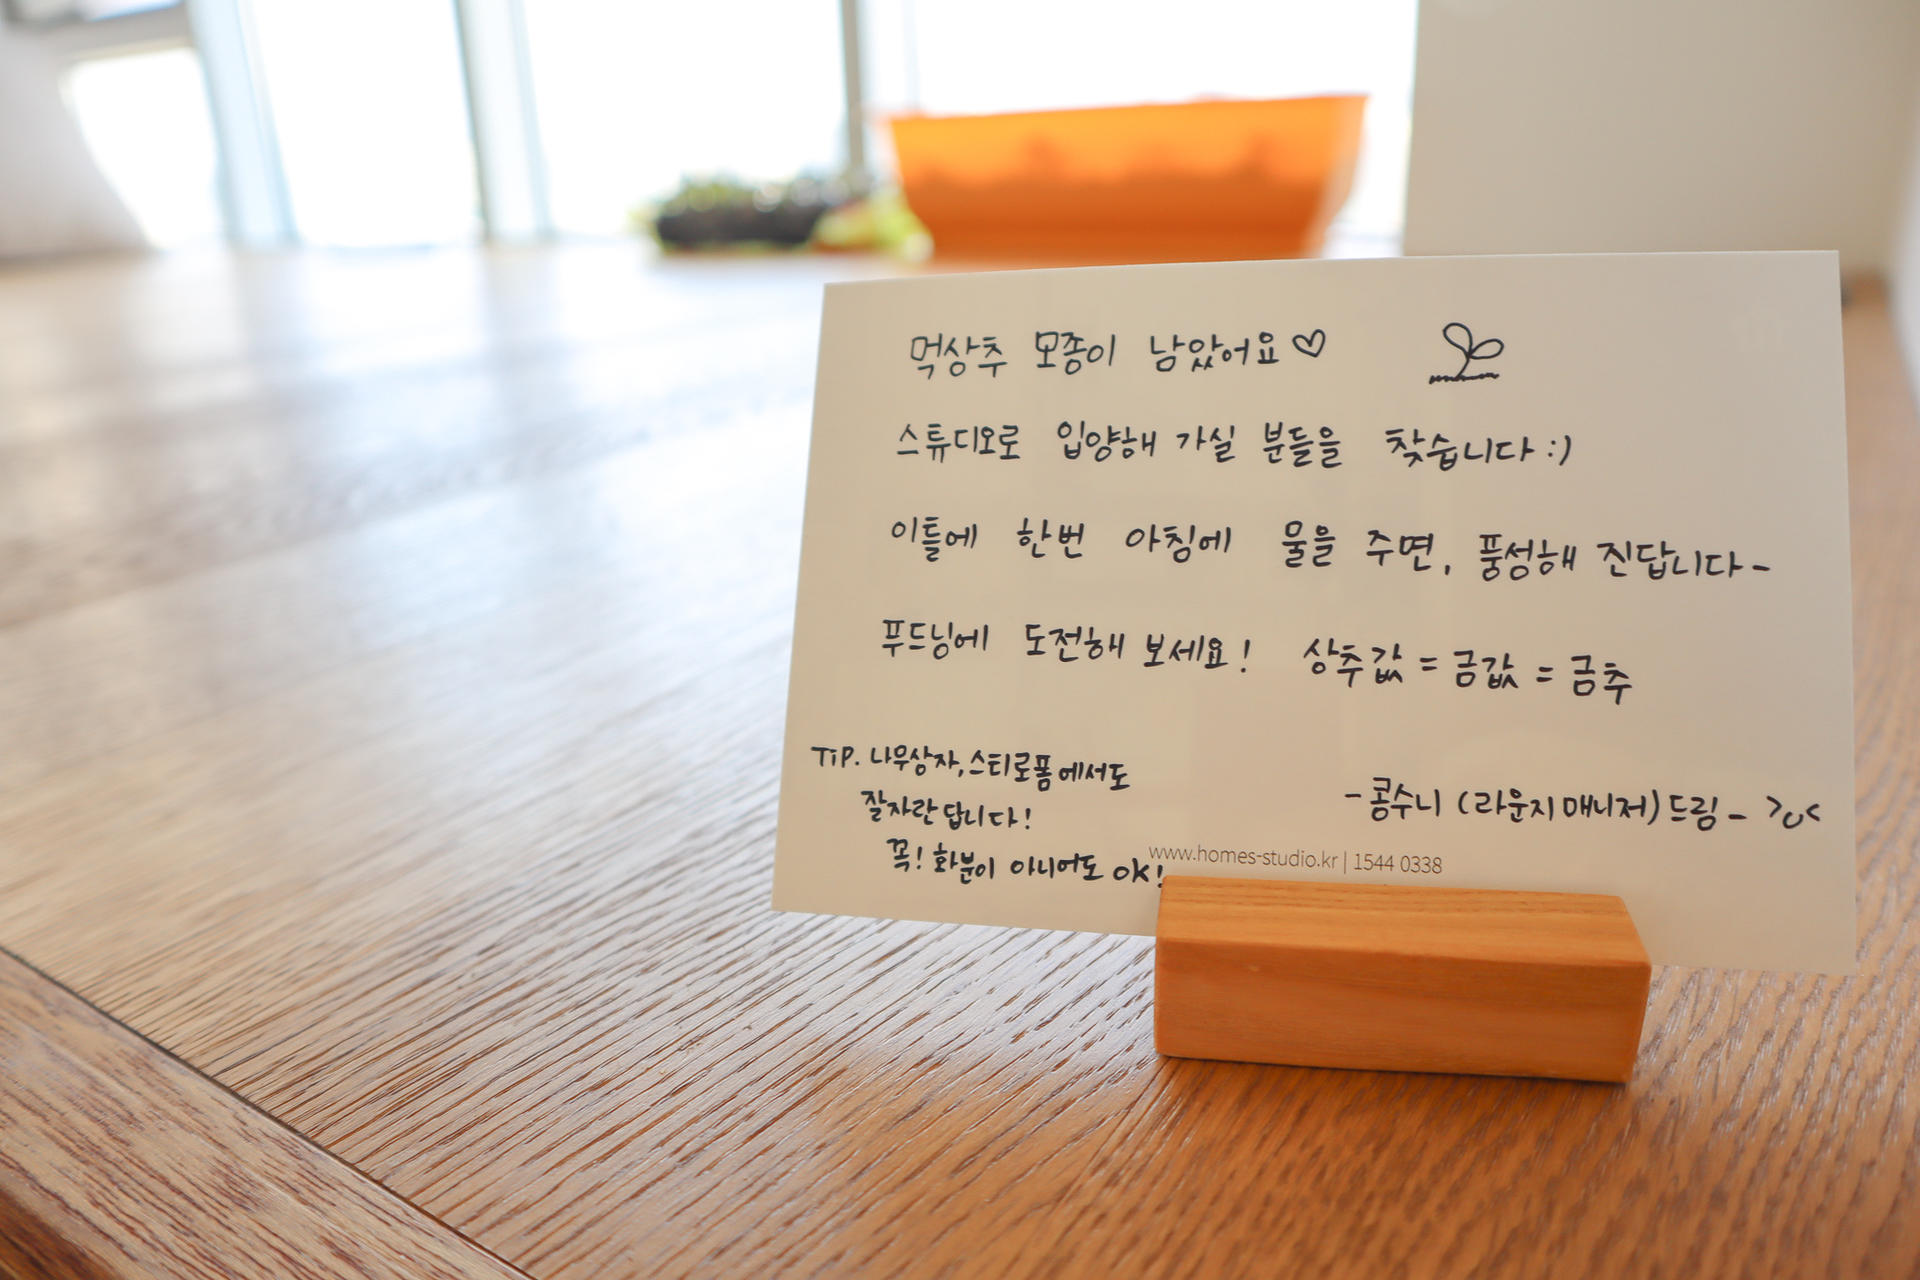 먹상추 모종이 남았어요♡
스튜디오로 입양해 가실 분들을 찾습니다 :)
이틀에 한번 아침에 물을 주면, 풍성해 진답니다-
푸드닝에 도전해 보세요! 상추값 = 금값 = 금추
TiP. 나무상자, 스티로폼에서도
잘자란답니다!
꼭! 화분이 아니어도 OK!
- 콩수니 (라운지 매니저) 드림 - >_<
www.homes-studio.kr | 1544 0338